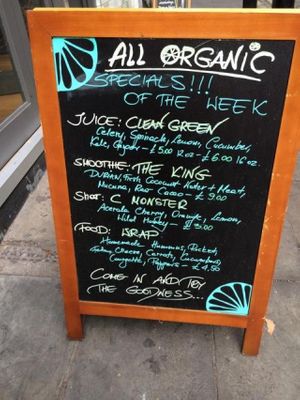 ALL ORGANIC
SPECIALS!!!
OF THE WEEK
JUICE: CLEAN GREEN
Celery, Spinach, Lemon, Cucumber,
Kale, Ginger - £5.00 12 oz - £6.00 16 oz.
SMOOTHIE: THE KING
DURIAN, Fresh Coconut Water + Meat,
Mucuna, Raw Cacao - £9.00
SHOT: C MONSTER
Acerola Cherry, Orange, Lemon,
Wild Honey - £3.00
FOOD: WRAP
Homemade Hummus,
Cheese Carrots, Cucumbers,
Courgette, Peppers - £4.50
COME IN AND TRY
THE GOODNESS...